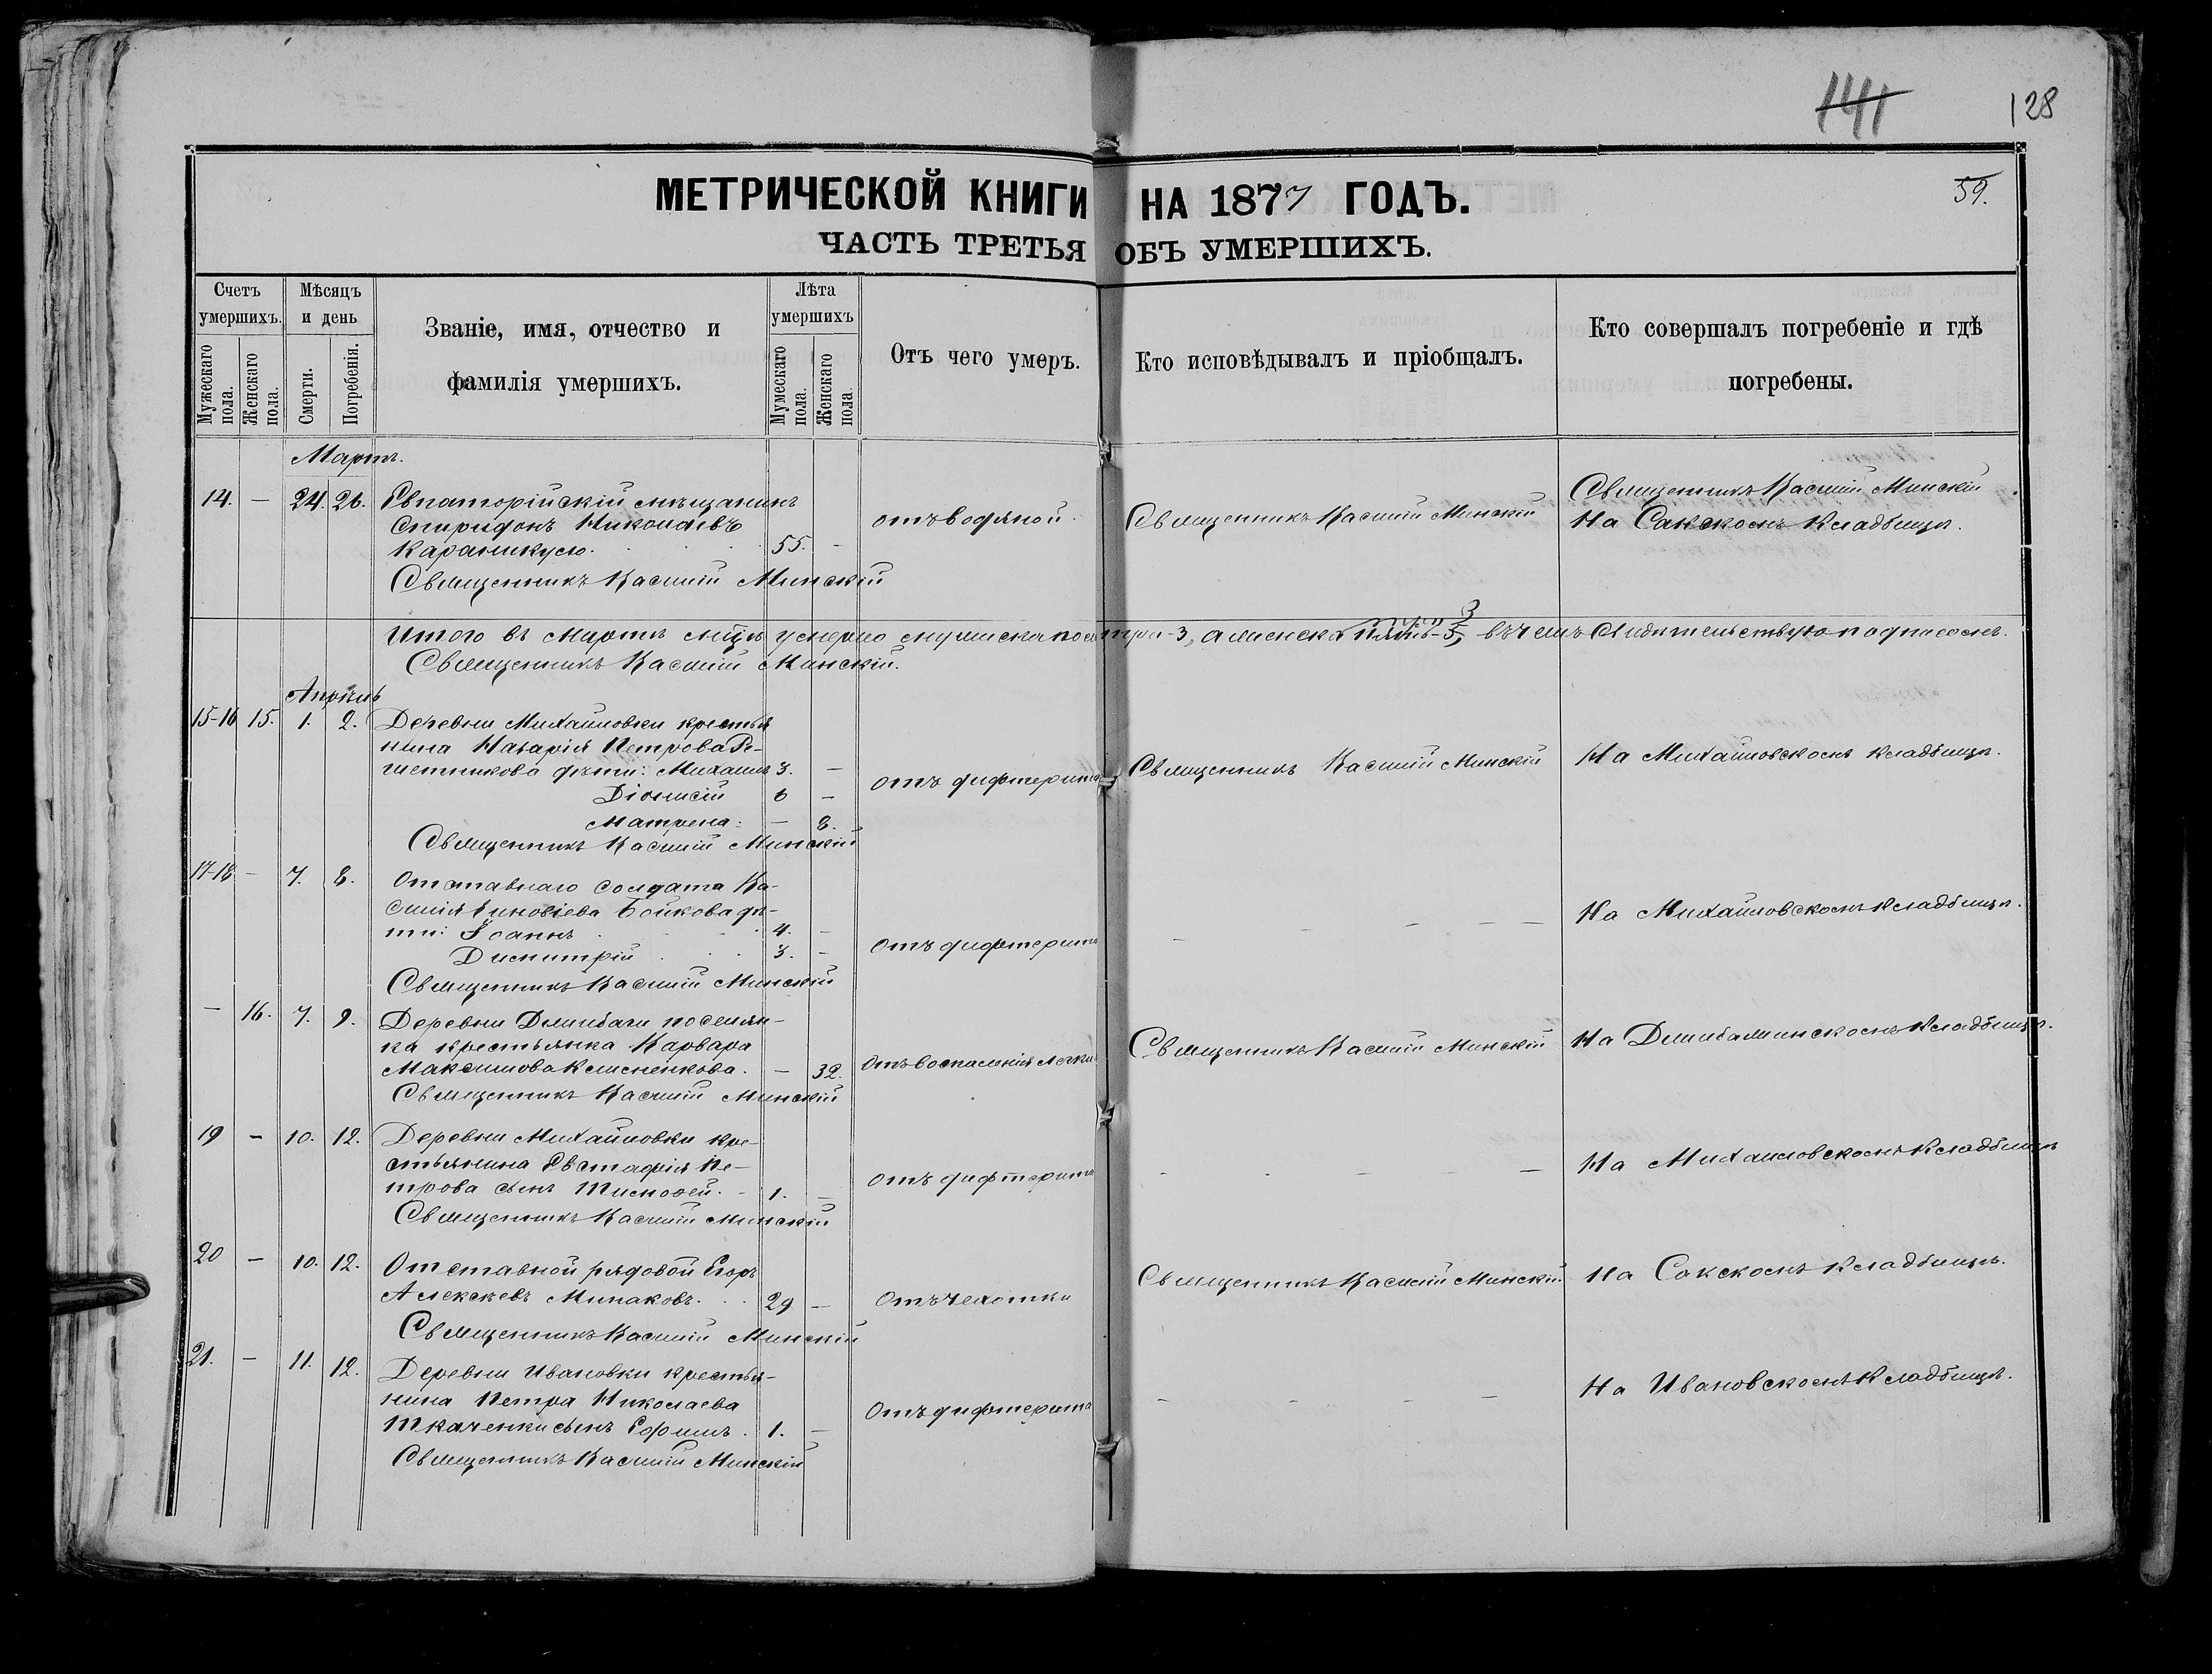 141
128
МЕТРИЧЕСКОЙ КНИГИ НА 1877 ГОДЪ.
59.
ЧАСТЬ ТРЕТЬЯ ОБЪ УМЕРШИХЪ.
Счетъ умершихъ.
Мужескаго пола.
Женскаго пола.
Мѣсяцъ и день
Смерти.
Погребенія.
Званіе, имя, отчество и
фамилія умершихъ.
Лѣта умершихъ
Мужескаго пола.
Женскаго пола.
Отъ чего умеръ.
Кто исповѣдывалъ и пріобщалъ.
Кто совершалъ погребеніе и гдѣ
погребены.
Мартъ.
14. — 24. 26. Евпаторійскій мѣщанинъ
Спиридонъ Николаевъ
55. —
отъ водяной.
Священникъ Касмій Минскій
Священникъ Касмій Минскій
На Сакскомъ кладбищѣ.
Священникъ Касмій Минскій
Итого въ Мартѣ умерло три-3, а женска 3 въ чемъ свидѣтельствую подписомъ.
Священникъ Касмій Минскій.
Апрѣль
15-16 15. 1. 2. Деревни Михайловки крестья
нина Назарія Петрова Ре-
шетникова дѣти: Михаилъ 3. —
Діонисій 6 —
Матрена: — 8.
отъ дифтерита
Священникъ Касмій Минскій
На Михайловскомъ кладбищѣ.
Священникъ Касмій Минскій
17-18 — 7. 8. Отставнаго солдата Ко-
смія Зиновіева Бойкова дѣ-
ти: Іоаннъ 4. —
Димитрій 3. —
отъ дифтерита
На Михайловскомъ кладбищѣ.
Священникъ Касмій Минскій
— 16. 7. 9. Деревни поселян-
ка крестьянка Варвара
Максимова Клименкова. — 32.
Отъ воспаленія легки
Священникъ Касмій Минскій
На кладбищѣ.
Священникъ Касмій Минскій
19 — 10. 12. Деревни Михайловки кре-
стьянина Евстафія Пе-
трова сынъ Тимофей. 1. —
отъ дифтерита
На Михайловскомъ кладбищѣ
Священникъ Касмій Минскій
20 — 10. 12. Отставной рядовой Егоръ
Алексѣевъ Минаковъ. 29 —
Отъ чехотки
Священникъ Касмій Минскій
На Сакскомъ кладбищѣ.
Священникъ Касмій Минскій
21. — 11. 12. Деревни Ивановки крестья-
нина Петра Николаева
Ткаченки сынъ Ефимъ. 1. —
Отъ дифтерита
На Ивановскомъ кладбищѣ.
Священникъ Касмій Минскій